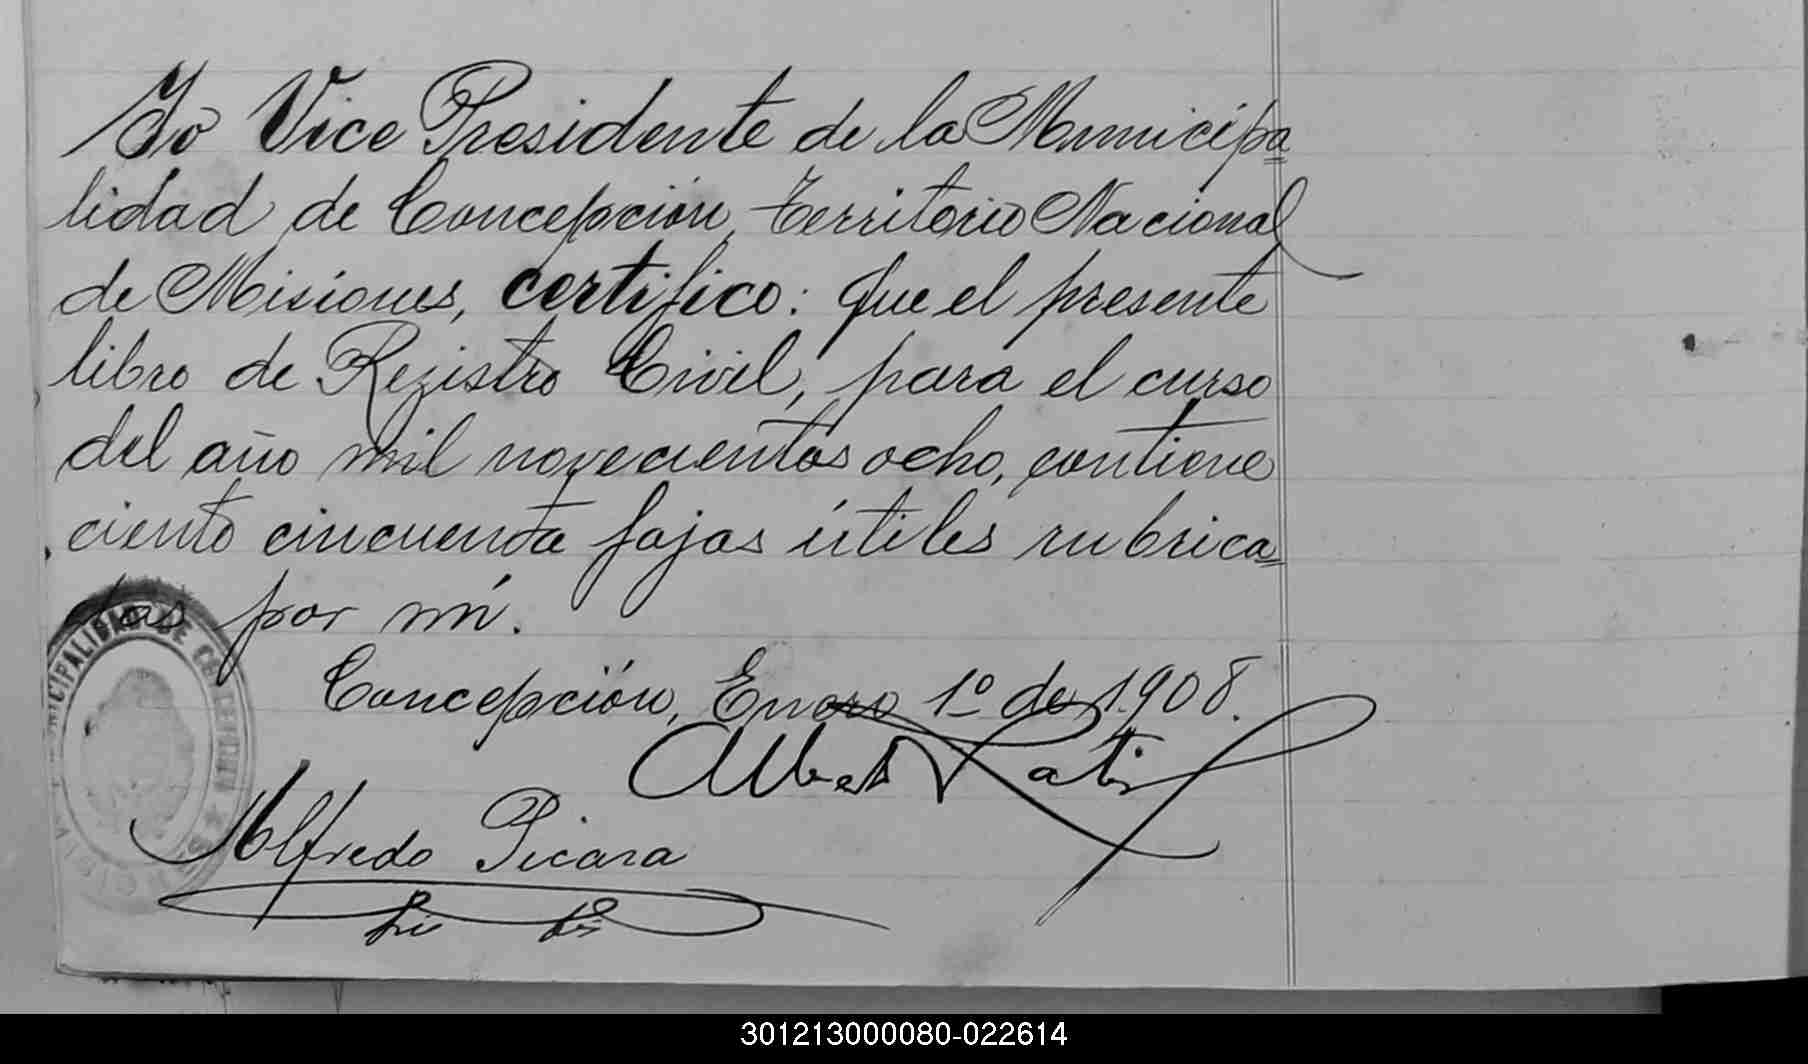 Yo Vice Presidente de la Municipa=
lidad de Concepción, Territorio Nacional
de Misiones, certifico: Que el presente
libro de Registro Civil, para el curso
del año mil novecientos ocho, contiene
ciento cincuenta fojas útiles rubrica=
das por mí.
Concepción, Enero 1º de 1908.
Alfredo Picasa
MUNICIPALIDAD DE CONCEPCION
301213000080-022614